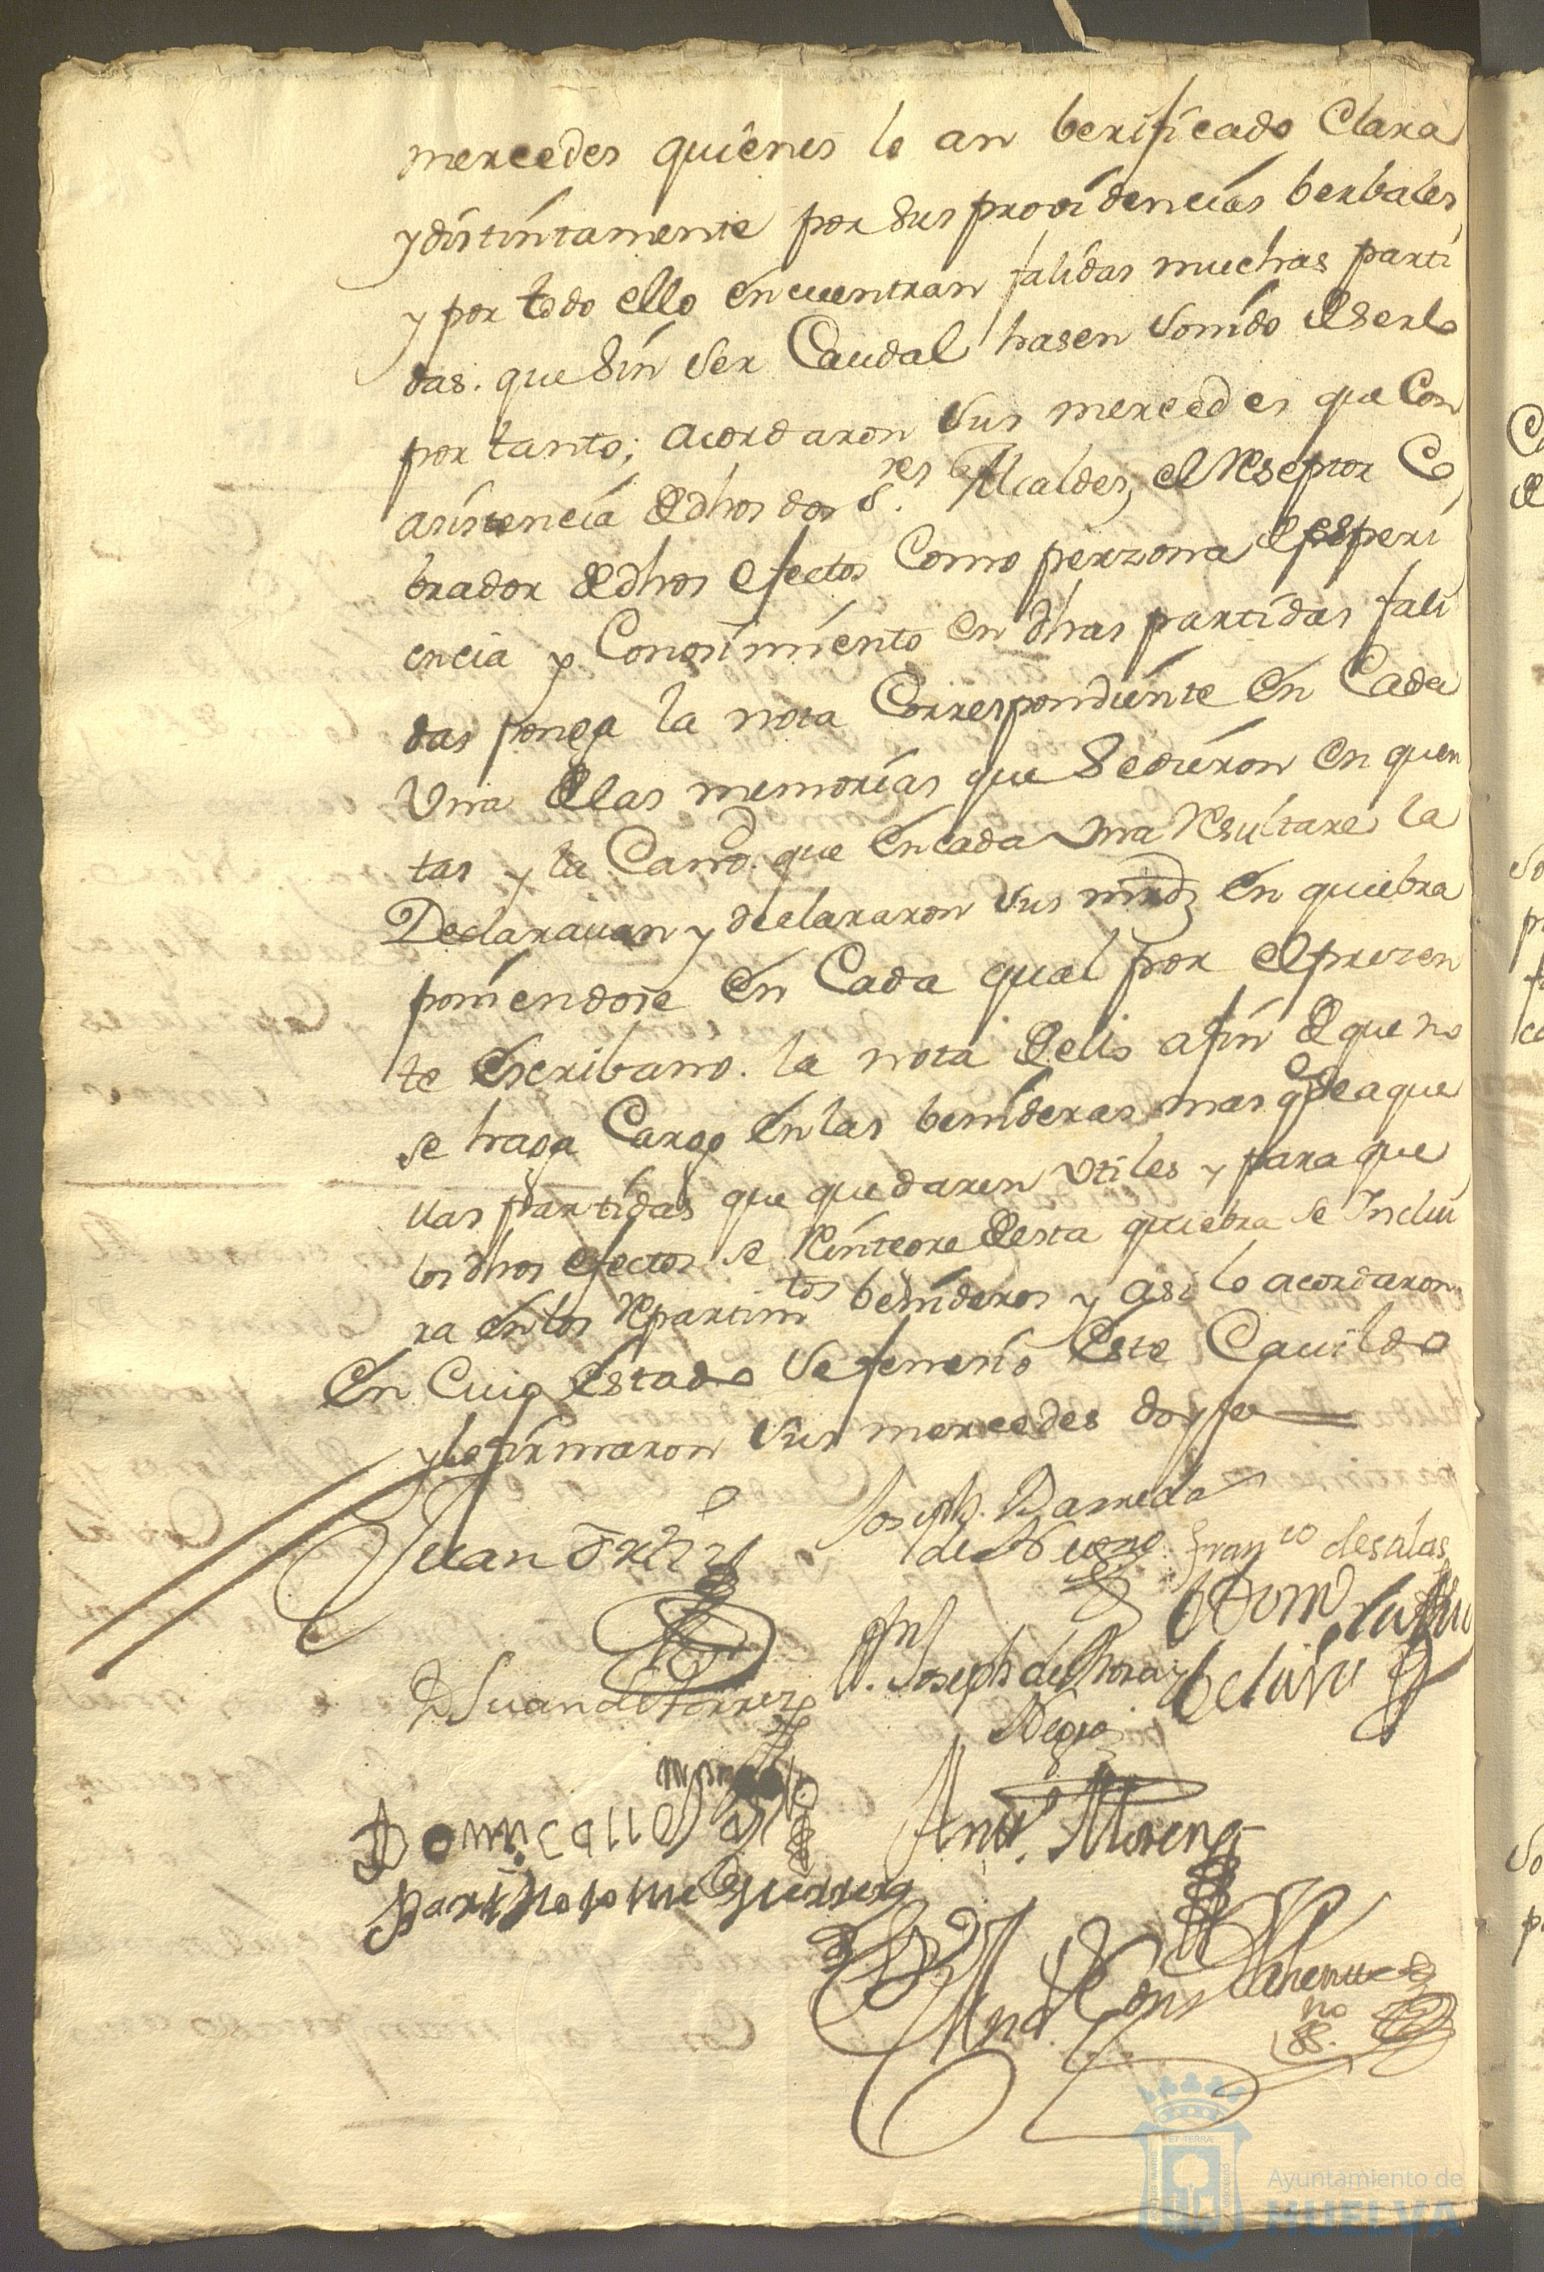 mercedes quienes lo an berificado Clara
y distintamente por sus providencias berbales
y por todo ello encuentran falidas muchas parti
das. que sin ser Caudal hasen sonido de serlo
por tanto; acordaron sus mercedes que Con
asistencia de dhos dos S.res Alcaldes, el Reseptor Co
brador de dhos efectos Como perzona de esperi
encia y Conosimiento en dhas partidas fali
das ponga la nota Correspondiente en Cada
Una de las memorias que se dieron en quen
tas y la Cantd. que en cada una Resultare la
Declaravan y declararon sus mrdz en quiebra
poniendose en Cada qual por el prezen
te escribano. la nota de ello a fin de que no
se haga Cargo en las benideras mas q de aque
llas partidas que quedaren utiles y para que
los dhos efectos se Reintegre de esta quiebra se Inclui
ra en los Repartimtos benideros y asi lo acordaron
En Cuio estado se fenesio este Cavildo
y lo firmaron sus mercedes doy fe
Juan Ortiz
Joseph. Barreda
de
Franco de salas
Joseph de Mora
D Juan de torrez
Negro
Domingo
Anto. Moreno
Barttolome Guerrero
Ayuntamiento de
HUELVA